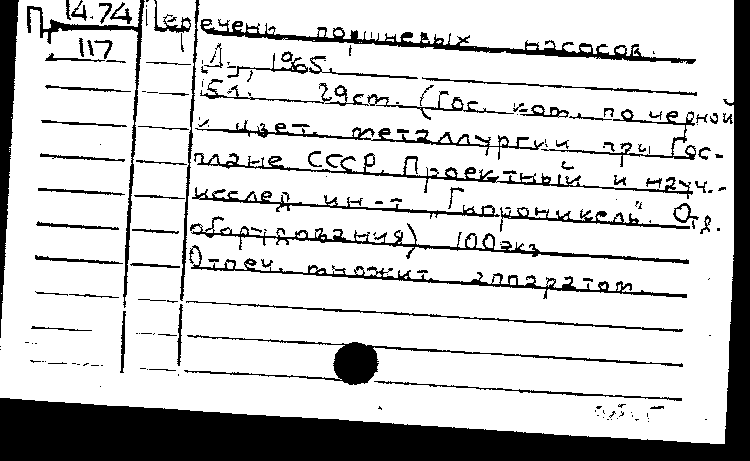 П 14.74
117
Перечень поршневых насосов.
Л., 1965.
15 л. 29 ст. (Гос. ком. по черной
и цвет. металлургии при Гос-
плане СССР. Проектный и науч.-
исслед. ин-т "Гипроникель". Отд.
оборудования) 100 экз
Отпеч. множит. аппаратом.